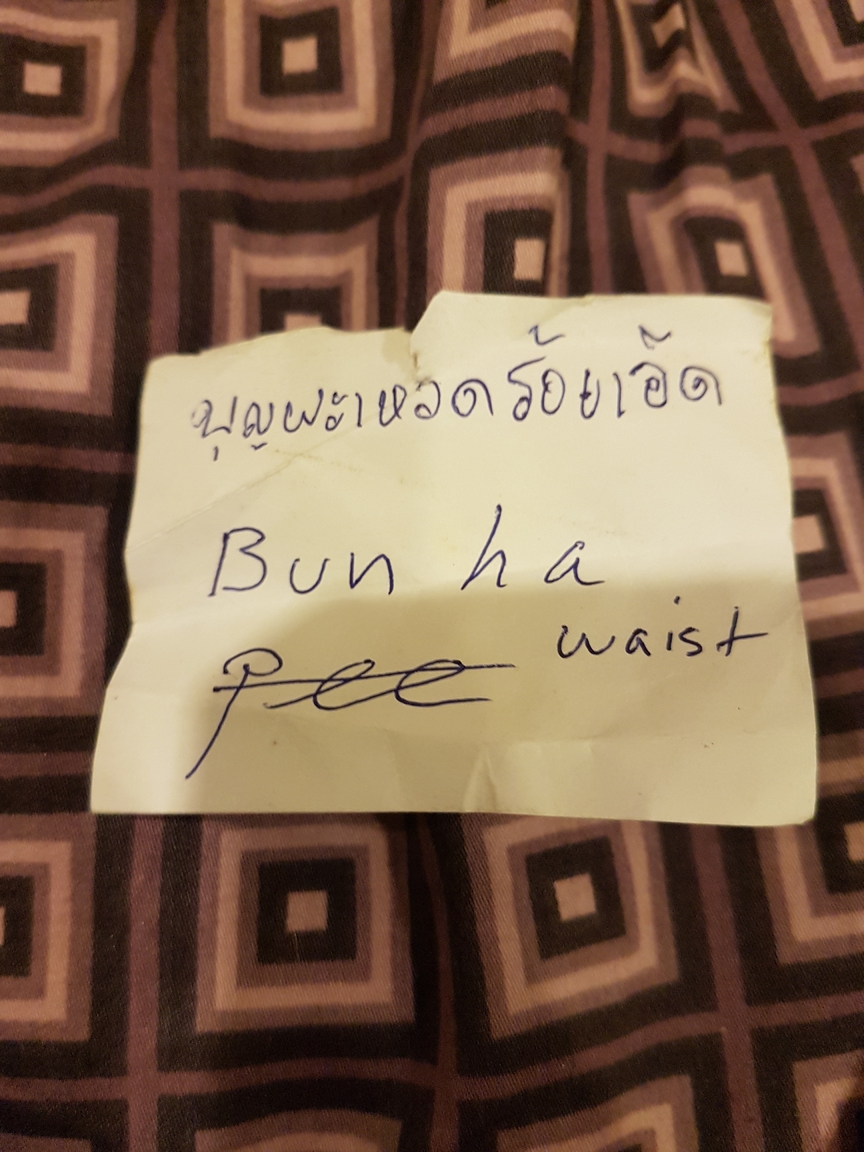 บุญผะเหวดร้อยเอ็ด
Bun ha
waist
Pee